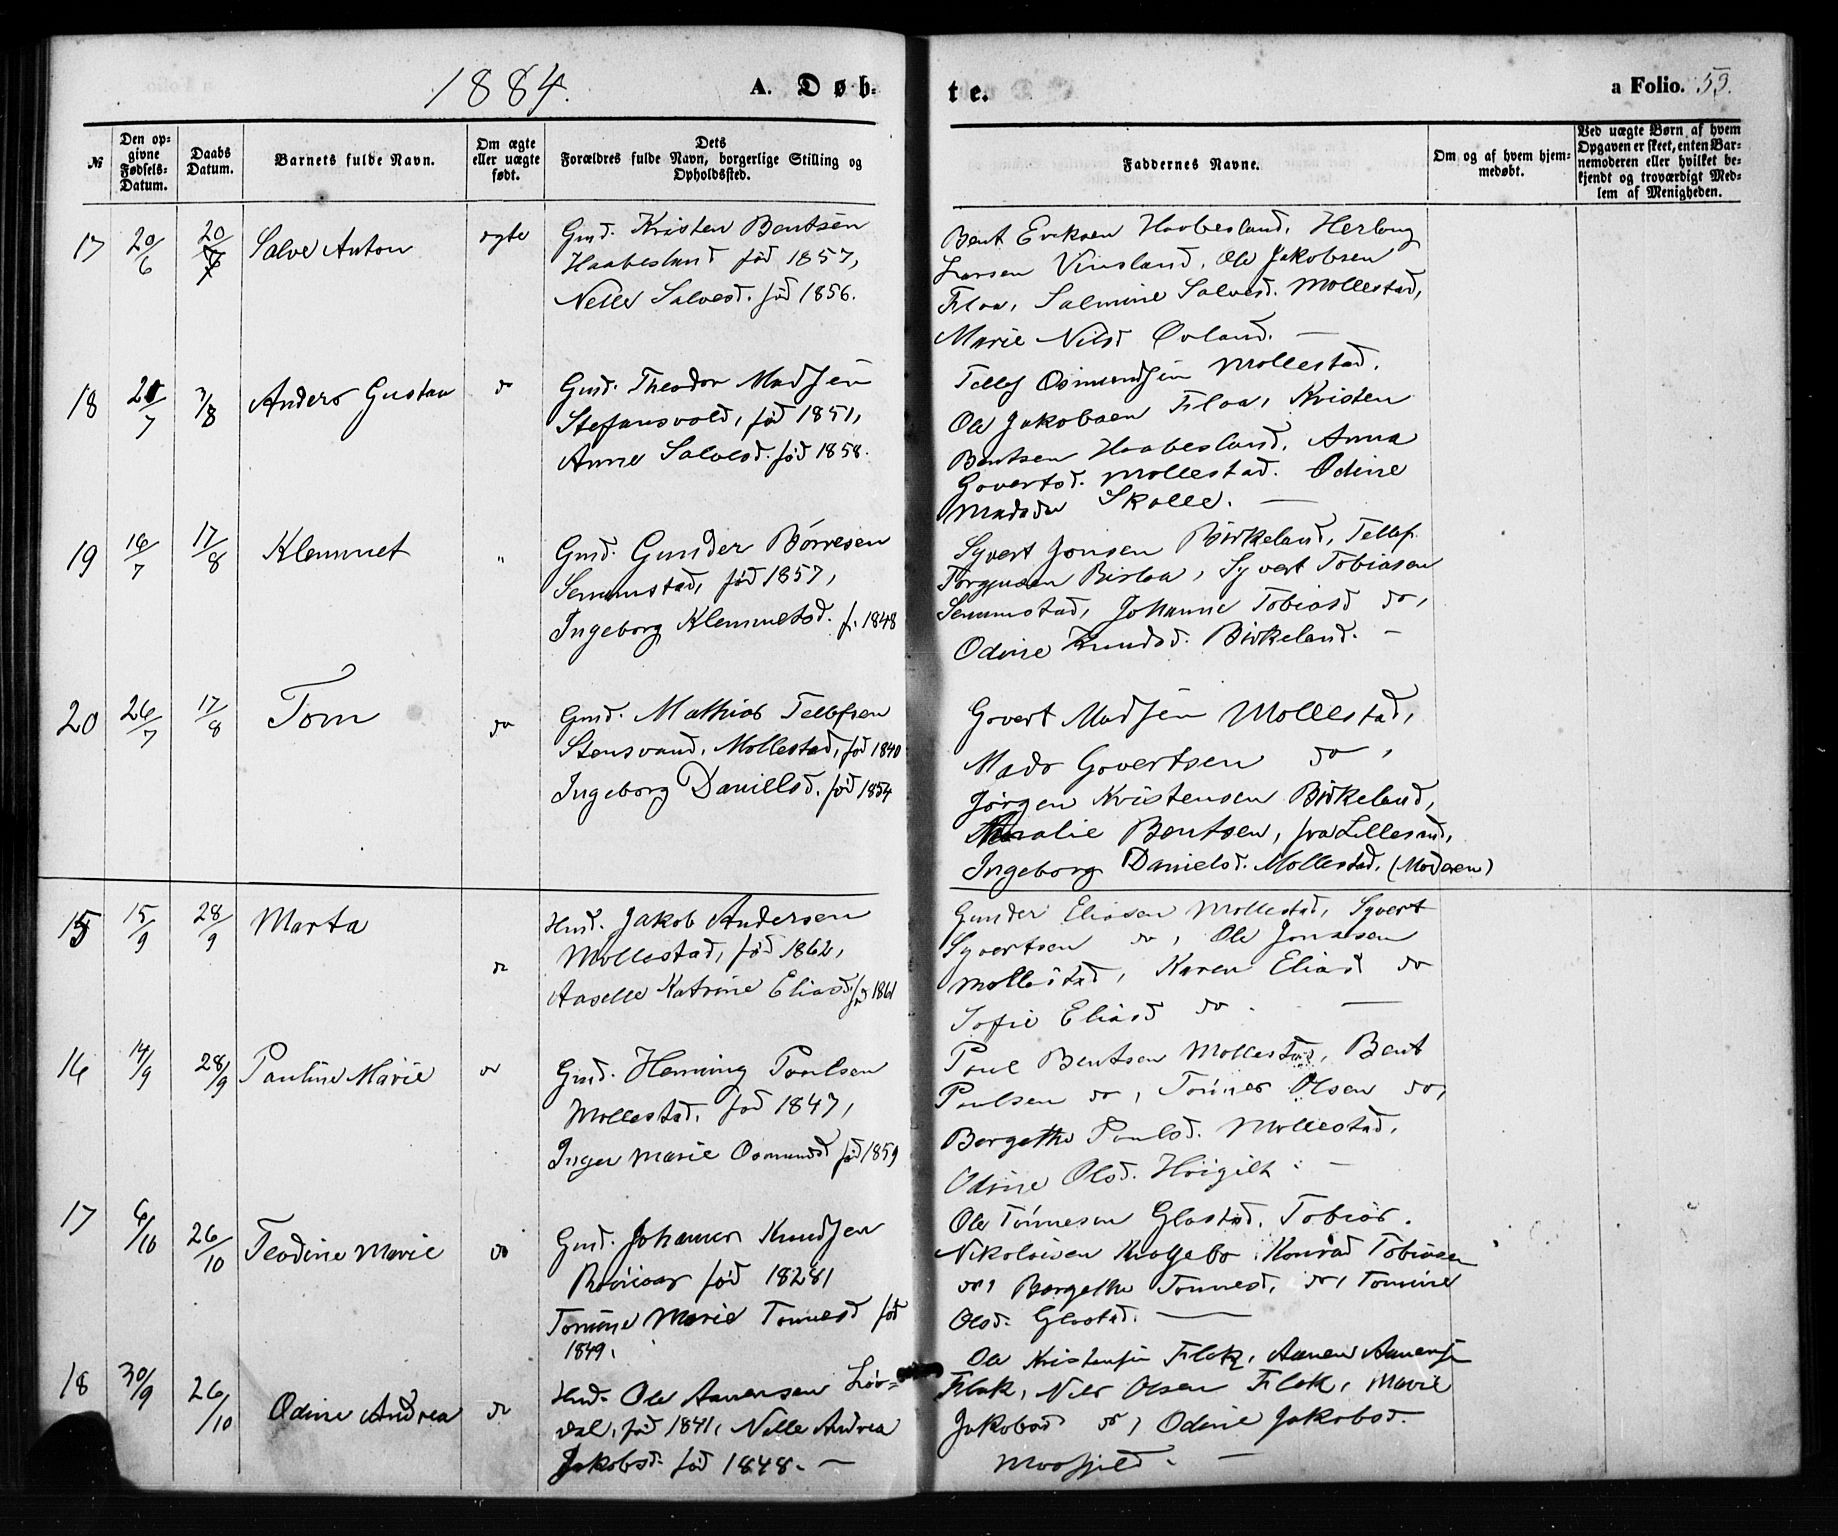 1884.
A. Døb-
te.
a Folio. 53.
№
Den op-
givne
Fødsels-
Datum.
Daabs
Datum.
Barnets fulde Navn.
Om ægte
eller uægte
født.
Dets
Forældres fulde Navn, borgerlige Stilling og
Opholdssted.
Faddernes Navne.
Om og af hvem hjem-
medøbt.
Ved uægte Børn af hvem
Opgaven er skeet, enten Bar-
nemoderen eller hvilket be-
kjendt og troværdigt Med-
lem af Menigheden.
17 20/6 20/7 Salve Anton ægte
Gmd. Kristen Bentsen
Haabesland fød 1857,
Nelle Salvesd. fød 1856.
Bent Eriksen Haabesland,
Larsen Vinsland, Ole Jakobsen
Flaa, Salmine Salvesd. Mollestad,
Marie Nilsd Øvland. —
18 21/7 3/8 Anders Gustav do
Gmd. Theodor Madsen
Stefansvold, fød 1851,
Anne Salvesd. fød 1858.
Tellef Osmundsen Mollestad,
Ole Jakobsen Flaa, Kristen
Bentsen Haabesland, Anna
Govertsd. Mollestad. Odine
Madsdr Skolle. —
19 16/7 17/8 Klemmet "
Gmd. Gunder Børresen
Semmstad, fød 1857,
Ingeborg Klemmetsd. f. 1848
Syvert Jonsen Birkeland, Tellef
Torgjusen Birlaa, Syvert Tobiasen
Semmstad, Johanne Tobiasd do,
Odine Knudsd. Birkeland. —
20 26/7 17/8 Tom do
Gmd. Mathias Tellefsen
Stensvand, Mollestad, fød 1840
Ingeborg Daniellsd. fød 1854
Govert Madsen Mollestad,
Mads Govertsen do,
Jørgen Kristensen Birkeland,
Bentsen, fra Lillesand,
Ingeborg Danielsd. Mollestad. (Moderen)
15 15/9 28/9 Marta do
Hmd. Jakob Andersen
Mollestad, fød 1862,
Aaselle Katrine Eliasd fød 1861
Gunder Eliasen Mollestad, Syvert
Syvertsen do, Ole Jonassen
Mollestad, Karen Eliasd do
Sofie Eliasd do. —
16 14/9 28/9 Pauline Marie do
Gmd. Henning Poulsen
Mollestad. fød 1847,
Inger Marie Osmundsd fød 1859
Poul Bentsen Mollestad, Bent
Poulsen do, Tønnes Olsen do,
Bergethe Poulsd. Mollestad,
Odine Olsd. Høigilt. —
17 6/10 26/10 Teodine Marie do
Gmd. Johannes Knudsen
fød 1828,
Tomine Marie Tønnesd fød
1849.
Ole Tønnesen Glastad, Tobias
Nikolaisen, Konrad Tobiasen
do, Bergethe Tønnesd, do, Tomine
Olsd. Glastad. —
18 30/9 26/10 Odine Andrea do
Hmd. Ole Aanensen Lør-
dal, fød 1841, Nelle Andrea
Jakobsd. fød 1848. —
Ole Kristensen Flak, Aanen Aanensen
Flak, Nils Olsen Flak, Marie
Jakobsd do, Odine Jakobsd.
Moosfjeld. —